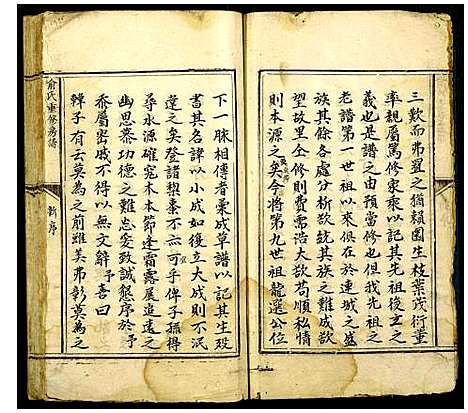 三歎而弗置之猶賴園生枝葉茂衍董
率親屬篤修家乘以記其先祖後立之
義也是譜之由預當修也但我先祖之
老譜第一世祖以來俱在於連城之大
族其餘各處分析欲統其族之難成欲
望故里仝修則費需浩大欲苟順私情
則本源之矣今將第九世祖龍選公位
下一脉相傳者栗成草譜以記其生殁
書其名諱以小成如後立大成則不泯
違之矣登諸梨棗不亦可乎俾子孫得
尋水源確寬木本節逢霜露展追遠之
幽思慕功德之難忘爰致誠懇序於予
忝屬宻戚不得以無文辭予喜曰
韓子有云莫為之前雖美弗彰莫為之
俞氏重修房譜
新序